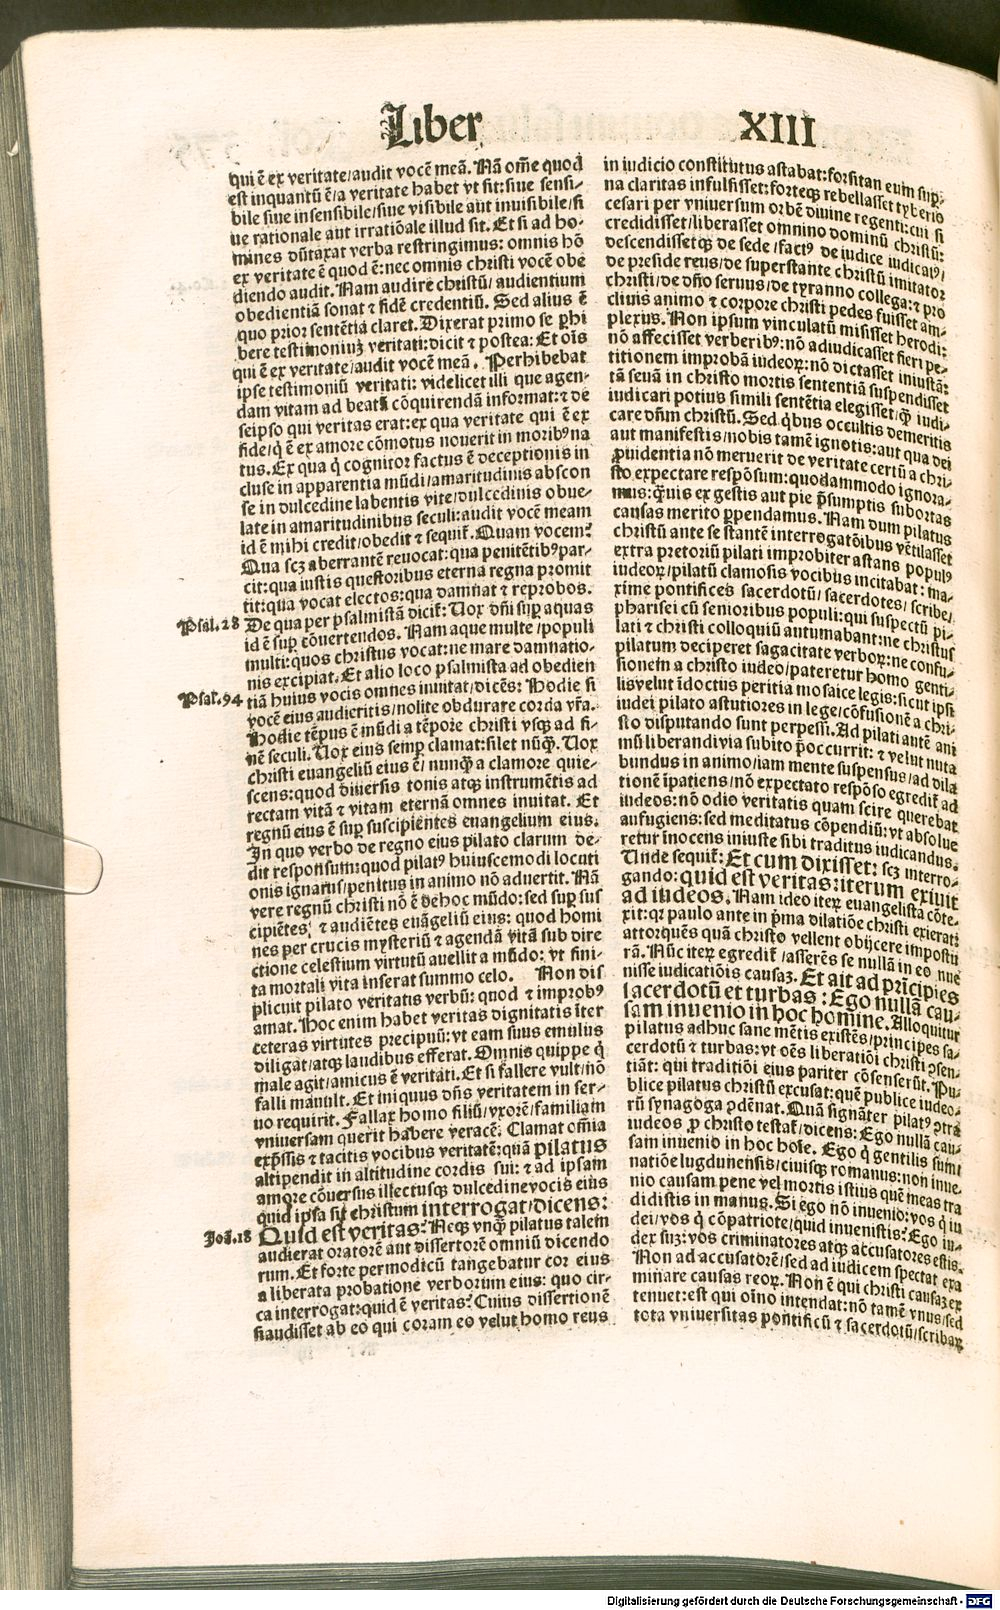 Liber XIII
qui ē ex veritate/audit vocē meā. Nā om̄e quod
est inquantū ē/a veritate habet vt sit: siue sensi-
bile siue insensibile/siue visibile aut inuisibile/si
ue rationale aut irratiōale illud sit. Et si ad ho-
mines dūtaxat verba restringimus: omnis hō
ex veritate ē quod ē: nec omnis christi vocē obe
diendo audit. Nam audire christū/audientium
obedientiā sonat ⁊ fidē credentiū. Sed alius ē
quo prior sentētia claret. Dixerat primo se ꝑhi
bere testimoniuꝫ veritati: dicit ⁊ postea: Et oīs
qui ē ex veritate/audit vocē meā. Perhibebat
ipse testimoniū veritati: videlicet illi que agen-
dam vitam ad beatā cōquirendā informat: ⁊ de
seipso qui veritas erat: ex qua veritate qui ē ex
fide/q̇ ē ex amore cōmotus nouerit in moribꝰ na
tus. Ex qua q̇ cognitor factus ē deceptionis in
cluse in apparentia mūdi/amaritudinis abscon
se in dulcedine labentis vite/dulcedinis obue-
late in amaritudinibus seculi: audit vocē meam
id ē mihi credit/obedit ⁊ sequit̄. Quam vocem?
Qua scꝫ aberrantē reuocat: qua penitētibꝰ par-
cit: qua iustis questoribus eterna regna promit
tit: qua vocat electos: qua damnat ⁊ reprobos.
Psal. 28 De qua per psalmistā dicit̄: Uox dn̄i suꝑ aquas
id ē suꝑ cōuertendos. Nam aque multe/populi
multi: quos christus vocat: ne mare damnatio-
nis excipiat. Et alio loco psalmista ad obedien
Psal. 94 tiā huius vocis omnes inuitat/dicēs: Hodie si
vocē eius audieritis/nolite obdurare corda vr̄a.
Hodie tēpus ē mūdi a tēpore christi vsqꝫ ad fi-
nē seculi. Uox eius semꝑ clamat: silet nūq̄ꝫ. Uox
christi euangeliū eius ē/ nunq̄ꝫ a clamore quie-
scens: quod diuersis tonis atqꝫ instrumētis ad
rectam vitā ⁊ vitam eternā omnes inuitat. Et
regnū eius ē suꝑ suscipientes euangelium eius.
In quo verbo de regno eius pilato clarum de-
dit responsum: quod pilatꝰ huiuscemodi locuti
onis ignarus/penitus in animo nō aduertit. Nā
vere regnū christi nō ē de hoc mūdo: sed suꝑ sus
cipiētes ⁊ audiētes euāgeliū eius: quod homi
nes per crucis mysteriū ⁊ agendā vitā sub dire
ctione celestium virtutū auellit a mūdo: vt fini-
ta mortali vita inserat summo celo. Non dis
plicuit pilato veritatis verbū: quod ⁊ improbꝰ
amat. Hoc enim habet veritas dignitatis iter
ceteras virtutes precipuū: vt eam suus emulus
diligat/atqꝫ laudibus efferat. Omnis quippe q̇
male agit/amicus ē veritati. Et si fallere vult/nō
falli mauult. Et iniquus dn̄s veritatem in ser-
uo requirit. Fallax homo filiū/vxorē/familiam
vniuersam querit habere veracē. Clamat om̄ia
exp̄ssis ⁊ tacitis vocibus veritatē: quā pilatus
altipendit in altitudine cordis sui: ⁊ ad ipsam
amore cōuersus illectusqꝫ dulcedine vocis eius
quid ipsa sit christum interrogat/dicens:
Joā. 18 Quid est veritas? Neqꝫ vnq̄ꝫ pilatus talem
audierat oratorē aut dissertorē omniū dicendo
rum. Et forte permodicū tangebatur cor eius
a liberata probatione verborum eius: quo cir-
ca interrogat: quid ē veritas? Cuius dissertionē
si audisset ab eo qui coram eo velut homo reus
in iudicio constitutus astabat: forsitan eum suꝑ-
na claritas infulsisset: forteqꝫ rebellasset tyberio
cesari per vniuersum orbē diuine regenti: cui si
credidisset/liberasset omnino dominū christū:
descendissetqꝫ de sede/factꝰ de iudice iudicatꝰ/
de preside reus/de superstante christū imitator
christi/de dn̄o seruus/de tyranno collega: ⁊ pro
cliuis animo ⁊ corpore christi pedes fuisset am-
plexus. Non ipsum vinculatū misisset herodi:
nō affecisset verberibꝰ: nō adiudicasset fieri pe-
titionem improbā iudeoꝝ: nō dictasset iniustā:
tā seuā in christo mortis sententiā suspendisset
iudicari potius simili sentētia elegisset/q̄ꝫ iudi-
care dn̄m christū. Sed q̇bus occultis demeritis
aut manifestis/nobis tamē ignotis: aut qua dei
ꝓuidentia nō meruerit de veritate certū a chri-
sto expectare respōsum: quodammodo ignora-
mus: q̄uis ex gestis aut pie p̄sumptis subortas
causas merito ꝑpendamus. Nam dum pilatus
christū ante se stantē interrogatōibus vētilasset
extra pretoriū pilati improbiter astans populꝰ
iudeoꝝ/pilatū clamosis vocibus incitabat: ma-
xime pontifices sacerdotū/sacerdotes/scribe/
pharisei cū senioribus populi: qui suspectū pi-
lati ⁊ christi colloquiū autumabant: ne christus
pilatum deciperet sagacitate verboꝝ: ne confu-
sionem a christo iudeo/pateretur homo genti-
lis velut īdoctus peritia mosaice legis: sicut ipsi
iudei pilato astutiores in lege/cōfusionē a chri-
sto disputando sunt perpessi. Ad pilati autē ani
mū liberandi via subito p̄occurrit: ⁊ velut nuta
bundus in animo/iam mente suspensus/ad dila
tionē īpatiens/nō expectato respōso egredit̄ ad
iudeos: nō odio veritatis quam scire querebat
aufugiens: sed meditatus cōpendiū: vt absolue
retur īnocens iniuste sibi traditus iudicandus.
Unde sequit̄: Et cum dixisset: scꝫ interro-
gando: quid est veritas: iterum exiuit
ad iudeos. Nam ideo iteꝝ euangelista cōte-
xit: qꝛ paulo ante in p̄ma dilatiōe christi exierat:
attorquēs quā christo vellent obijcere impostu
rā. Nūc iteꝝ egredit̄/asserēs se nullā in eo nue
nisse iudicatiōis causaꝫ. Et ait ad prīcipies
sacerdotū et turbas: Ego nullā cau-
sam inuenio in hoc homine. Alloquitur
pilatus adhuc sane mētis existēs/principes sa-
cerdotū ⁊ turbas: vt oēs liberatiōi christi ꝯsen-
tiāt: qui traditiōi eius pariter cōsenserūt. Pu-
blice pilatus christū excusat: quē publice iudeo-
rū synagoga ꝯdēnat. Quā signāter pilatꝰ ꝯtra
iudeos ꝓ christo testat̄/dicens: Ego nullā cau-
sam inuenio in hoc hoīe. Ego q̇ gentilis sum
natiōe lugdunensis/ciuisqꝫ romanus: non inue-
nio causam pene vel mortis istius quē meas tra
didistis in manus. Si ego nō inuenio: vos q̇ iu
dei/vos q̇ cōpatriote/quid inuenistis? Ego iu-
dex suꝫ: vos criminatores atqꝫ accusatores estis.
Non ad accusatorē/sed ad iudicem spectat exa
minare causas reoꝝ. Non ē qui christi causaꝫ ex
tenuet: est qui oīno intendat: nō tamē vnus/sed
tota vniuersitas pontificū ⁊ sacerdotū/scribaꝝ
Digitalisierung gefördert durch die Deutsche Forschungsgemeinschaft - DFG